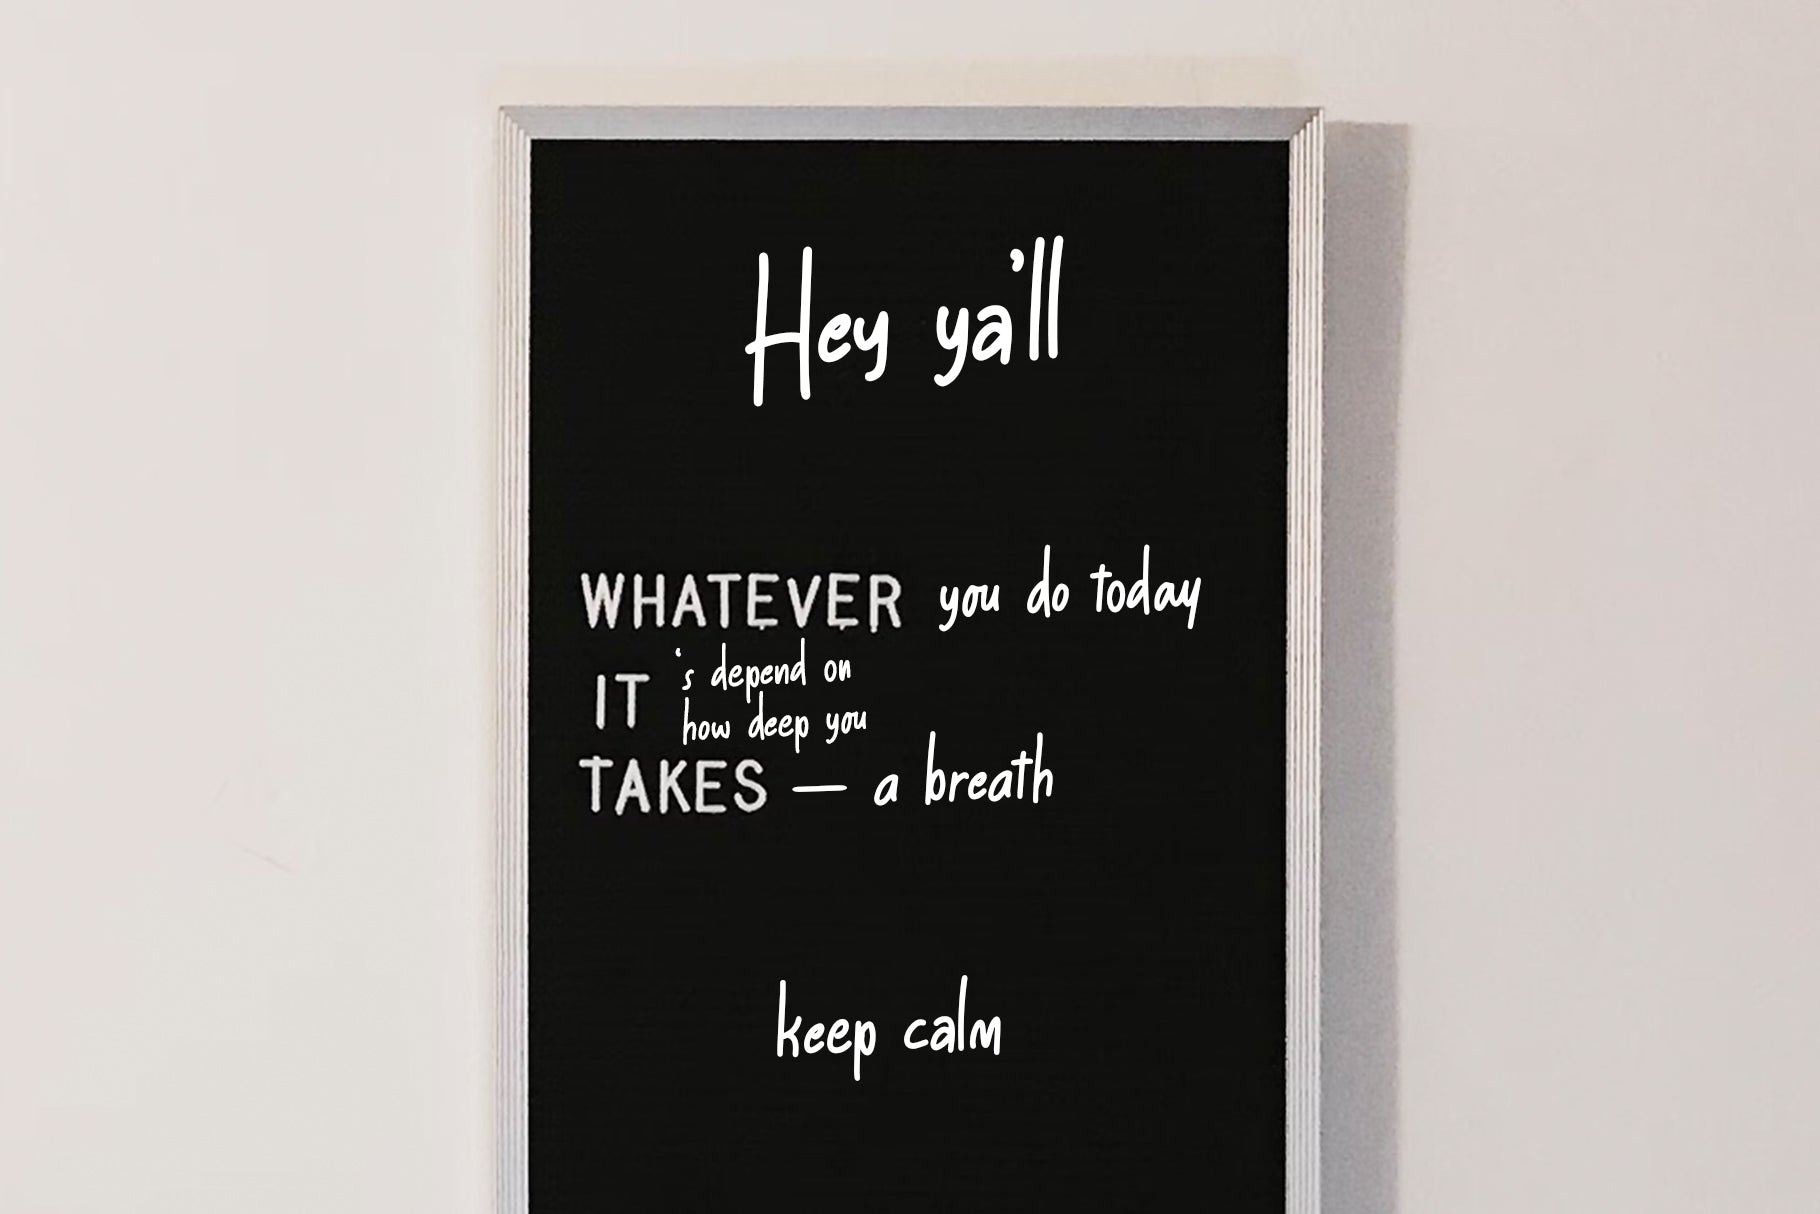 Hey ya'll
WHATEVER you do today
IT 's depend on
how deep you
TAKES — a breath
keep calm